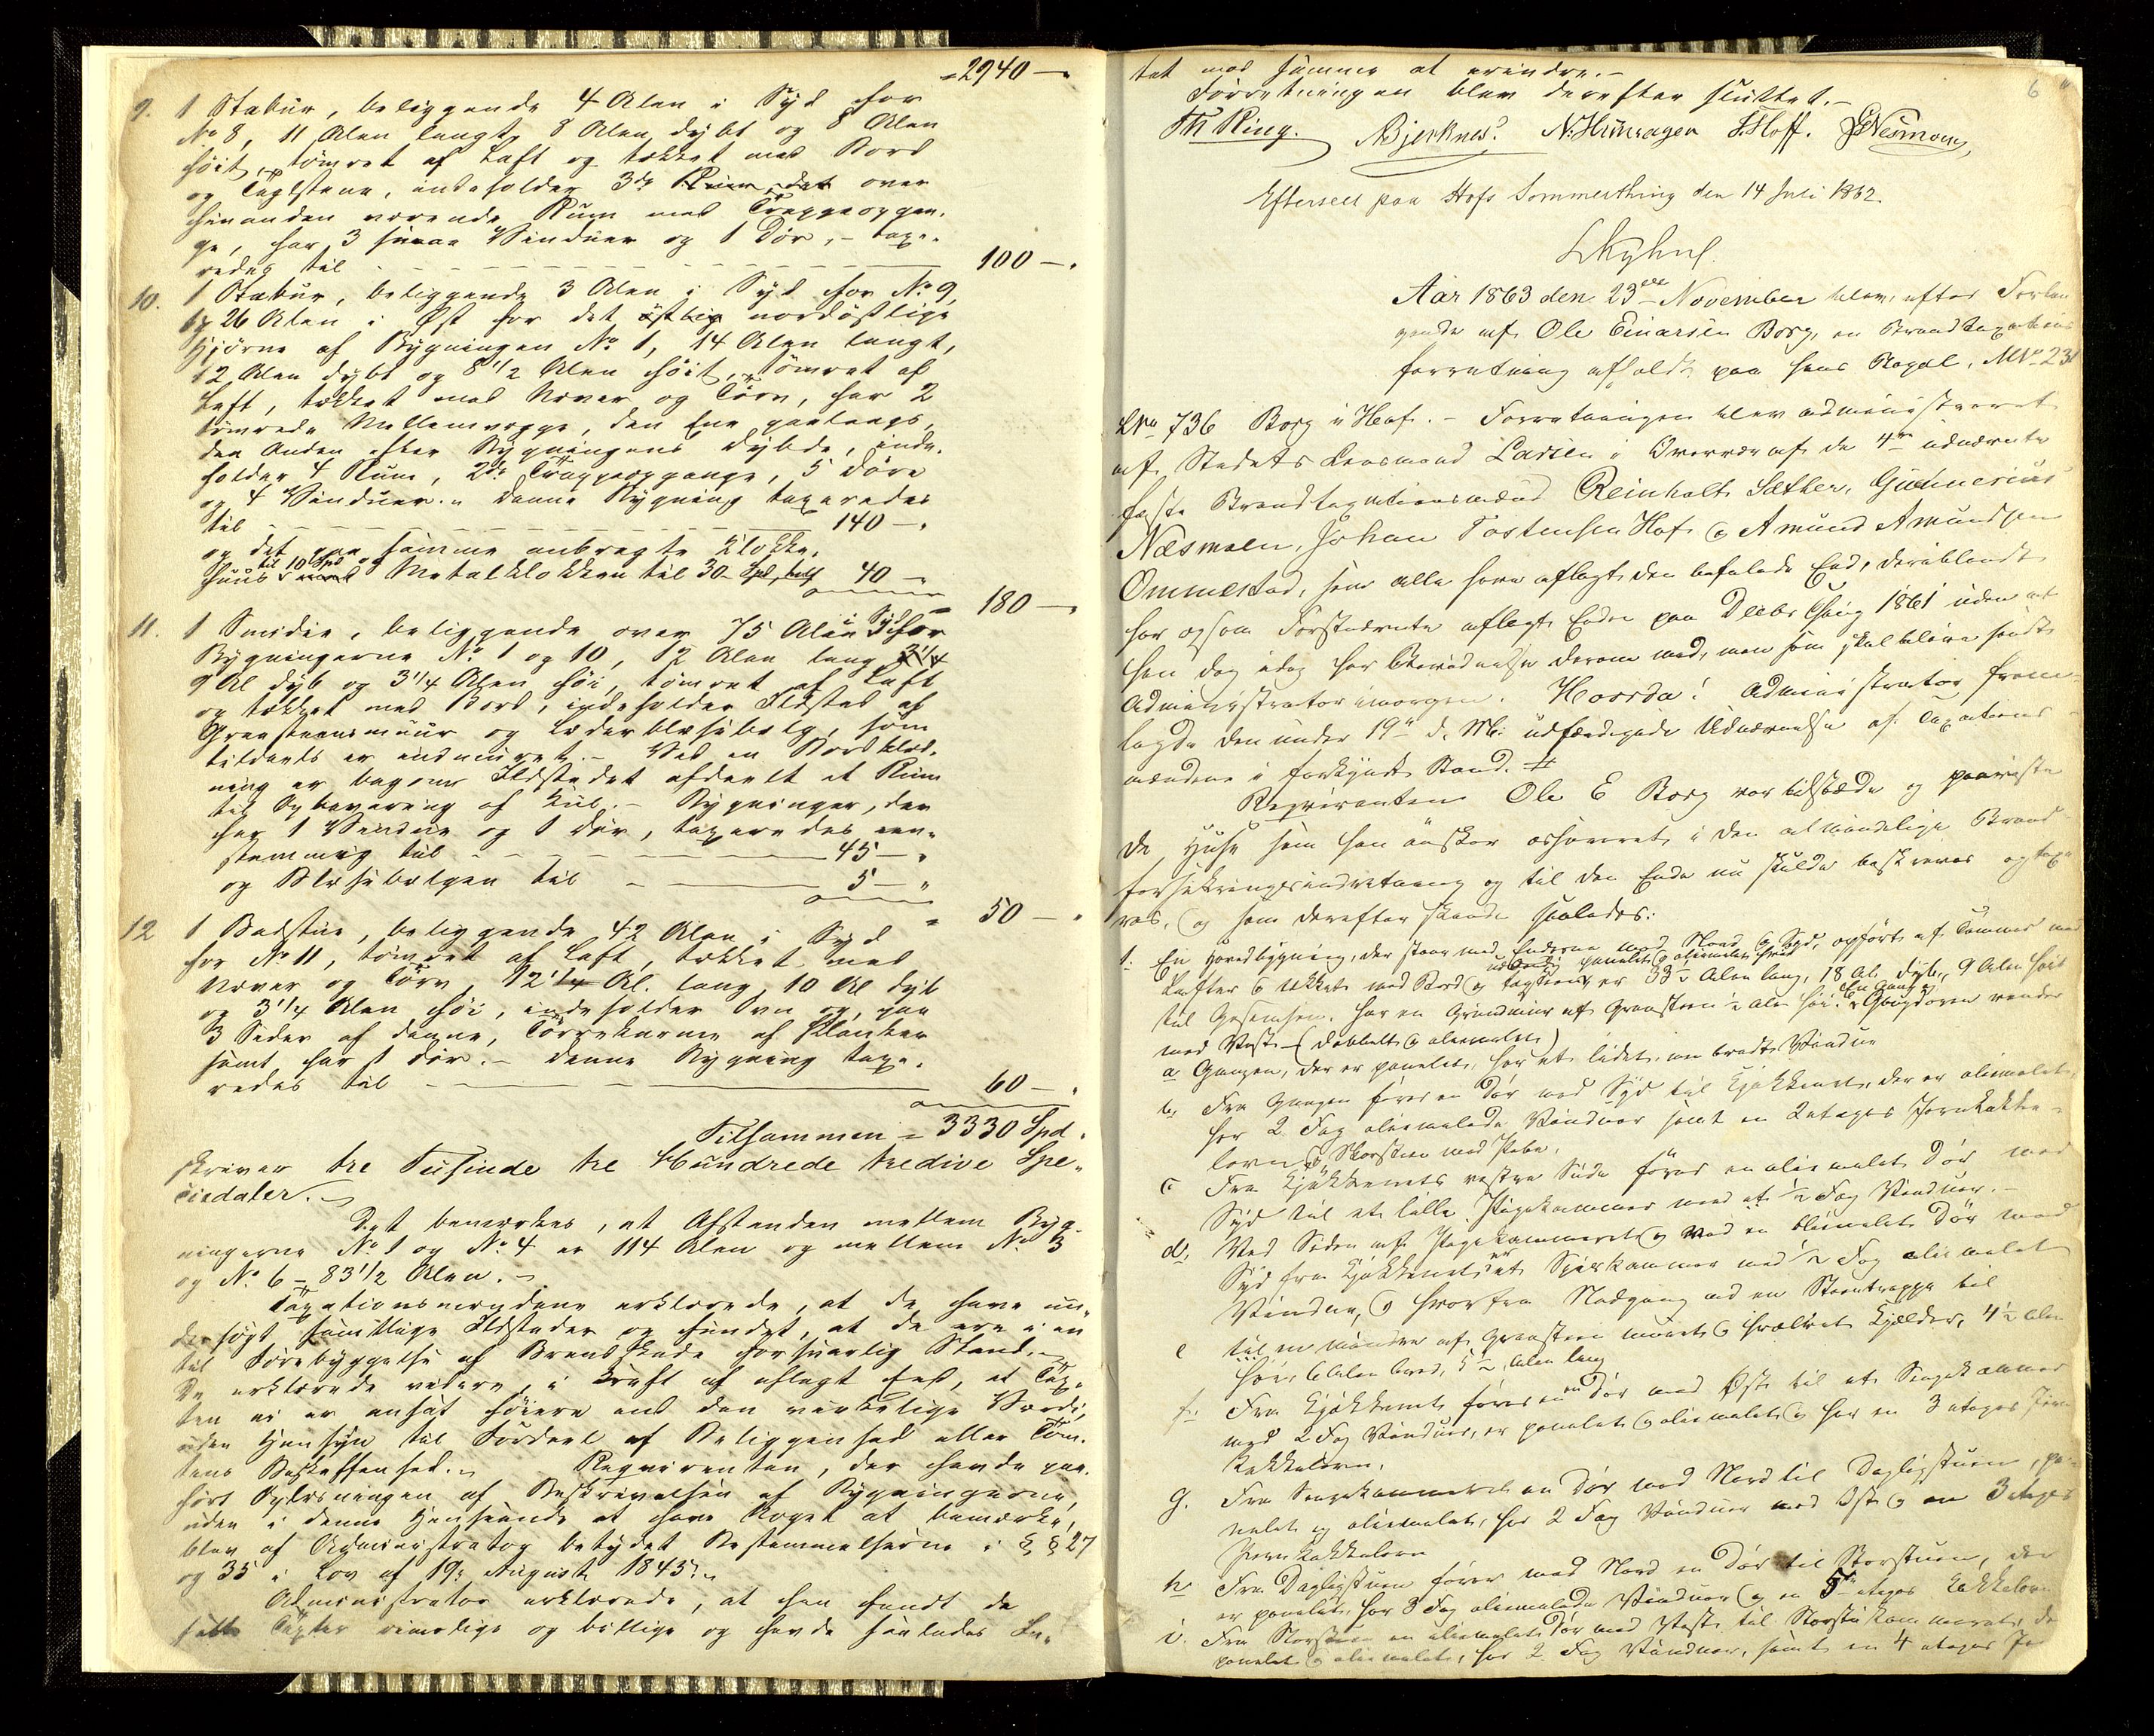 = 2940 —„
9. 1 Stabur, beliggende 4 Alen i Syd for
No 8, 11 Alen langt, 8 Alen dybt og 8 Alen
høit, tømret af Laft og tækket med Bord
og Taglsteene, indeholder 3de over
hinanden værende Rum med Trappeopgan-
ge, har 3 smaae Vinduer og 1 Dør, – taxe-
redes til 100 —„
10. 1 Stabur, beliggende 3 Alen i Syd for No 9,
og 26 Alen i Øst for det nordøstlige
Hjørne af Bygningen No 1, 14 Alen langt,
12 Alen dybt og 8 1/2 Alen høit, tømret af
Laft, tækket med Næver og Törv, har 2
tømrede Mellemvægge, den Ene paalangs,
den Anden efter Bygningens Dybde, inde-
holder 4 Rum, 2de Trappeopgange, 5 Døre
og 4 Vinduer. – Denne Bygning taxeredes
til 140 —„
og det paa samme anbragte Klokke-
huus til 10 Spd og Metalklokken til 30 Spd, tils 40 —„
= 180 —„
11. 1 Smidie, beliggende over 75 Alen i Syd for
Bygningerne No 1 og 10, 12 Alen lang
9 Al dyb og 3 1/4 Alen høi, tømret af Laft
og tækket med Bord, indeholder Ildsted af
Graasteensmuur og Læderblæsebelg, som
tildeels er indmuret. – Ved en Bordklæd-
ning er bagom Ildstedet afdeelt et Rum
til Opbevaring af Kul. – Bygningen, der
har 1 Vindue og 1 Dør, taxeredes een-
stemmig til 45 —„
og Blæsebelgen til 5 —„
= 50 —„
12 1 Badstue, beliggende 42 Alen i Syd
for No 11, tømret af Laft, tækket med
Næver og Törv, 12 Al. lang, 10 Al dyb
og 3 1/4 Alen høi, indeholder Ovn og, paa
3 Sider af denne, Tørrekarme af Planker
samt har 1 Dør. – Denne Bygning taxe-
redes til 60 —„
Tilsammen = 3330 Spd.
skriver tre Tusinde tre Hundrede tredive Spe-
ciedaler. –
Det bemærkes, at Afstanden mellem Byg-
ningerne No 1 og No 4 er 114 Alen og mellem No 3
og No 6 = 83 1/2 Alen. –
Taxationsmændene erklærede, at de have un-
dersøgt samtlige Ildsteder og fundet, at de ere i en
til Forebyggelse af Brandskade forsvarlig Stand. –
De erklærede videre, i Kraft af aflagt Eed, at Tax-
ten ei er ansat høiere end den virkelige Værdi,
uden Hensyn til Fordeel af Beliggenhed eller Tom-
tens Beskaffenhed. – Reqvirenten, der havde paa-
hørt Oplæsningen af Beskrivelsen af Bygningerne,
uden i denne Henseende at have Noget at bemærke,
blev af Administrator betydet Bestemmelserne i § § 27
og 35 i Lov af 19: August 1845. –
Administrator erklærede, at han fandt de
satte Taxter rimelige og billige og havde saaledes In-
6
tet mod samme at erindre. –
Forretningen blev derefter sluttet. –
Th Ring. ABjerknes. N. Hunragen L. Hoff. GNesmoen,
Efterseet paa Hofs Sommerthing den 14 Juli 1862.
Aar 1863 den 23de November blev, efter Forlan-
gende af Ole Einarsen Borg, en Brandtaxations
forretning afholdt paa hans Brug, MNo 231
LNo 736 Borg i Hof. – Forretningen blev administreret
af Stedets Lensmand Larsen i Overvær af de 4re udnævnte
faste Brandtaxationsmænd Reinholt Sæther, Gudnerius
Næsmoen, Johan Tostensen Hof & Amund Amundsen
Ommestad, som alle have aflagt den befalede Eed, deriblandt
har ogsom Førstnævnte aflagt Eeden paa Dcbr Thing 1861 uden at
han dog idag har Bevidnelse derom med, men som skal blive sendt
Administrator imorgen. Hvorda! Administrator frem-
lagde den under 19de d. M: udfærdigede Udnævnelse af Taxations-
mændene i forkyndt Stand. #
Reqvirenten Ole E Borg var tilstæde og paaviste
de Huse som han ønsker assureret i den almindelige Brand-
forsikringsindretning og til den Ende nu skulde beskrives og taxe-
res, og som derefter skeede saaledes:
1. En Hovedbygning, der staar med Enderne mod Nord & Syd, opført af Tømmer med
udvendig panelet & oliemalet hvid
Lafter & tækket med Bord & Tagsteen, er 33 1/2 Alen lang, 18 Al. dyb, 9 Alen høi
til Gesimsen. Har en Grundmuur af Graasteen 1/2 Alen høi. En Gang & Gangdøren vender
mod Vest. (dobbelt & oliemalet)
a Gangen, der er panelet, har et lidet, men bredt Vindue
b, Fra Gangen fører en Dør mod Syd til Kjøkkenet, der er oliemalet,
har 2 Fag oliemalede Vinduer samt en 2etages Jernkakke-
lovn & Skorsteen med Pibe.
c. Fra Kjøkkenets vestre Side fører en oliemalet Dør mod
Syd til et lille Pigekammer med et 1/2 Fag Vinduer. –
d, Ved Siden af Pigekammeret & ved en oliemalet Dør mod
Syd fra Kjøkkenet er et Spisekammer med 1/2 Fag oliemalet
Vindue, & hvorfra Nedgang ad en Steentrappe til
e til en mindre af Graasteen muret & hvælvet Kjælder, 4 1/2 Alen
høi, 6 Alen bred, 5 1/2 Alen lang
f. Fra Kjøkkenet fører en Dør mod Øst til et Sengekammer
med 2 Fag Vinduer, er panelet & oliemalet & har en 3 etages Jern
Kakkelovn.
g. Fra Sengekammeret en Dør mod Nord til Dagligstuen, pa-
nelet og oliemalet, har 2 Fag Vinduer mod Øst & en 3 etages
Jernkakkelovn
h Fra Dagligstuen fører mod Nord en Dør til Storstuen, der
er panelet, har 3 Fag oliemalede Vinduer & en 5 etages Kakkelovn
i. Fra Storstuen en oliemalet Dør mod Vest til Storstukammeret, der
panelet & oliemalet, har 2 Fag Vinduer, samt en 4 etages Je